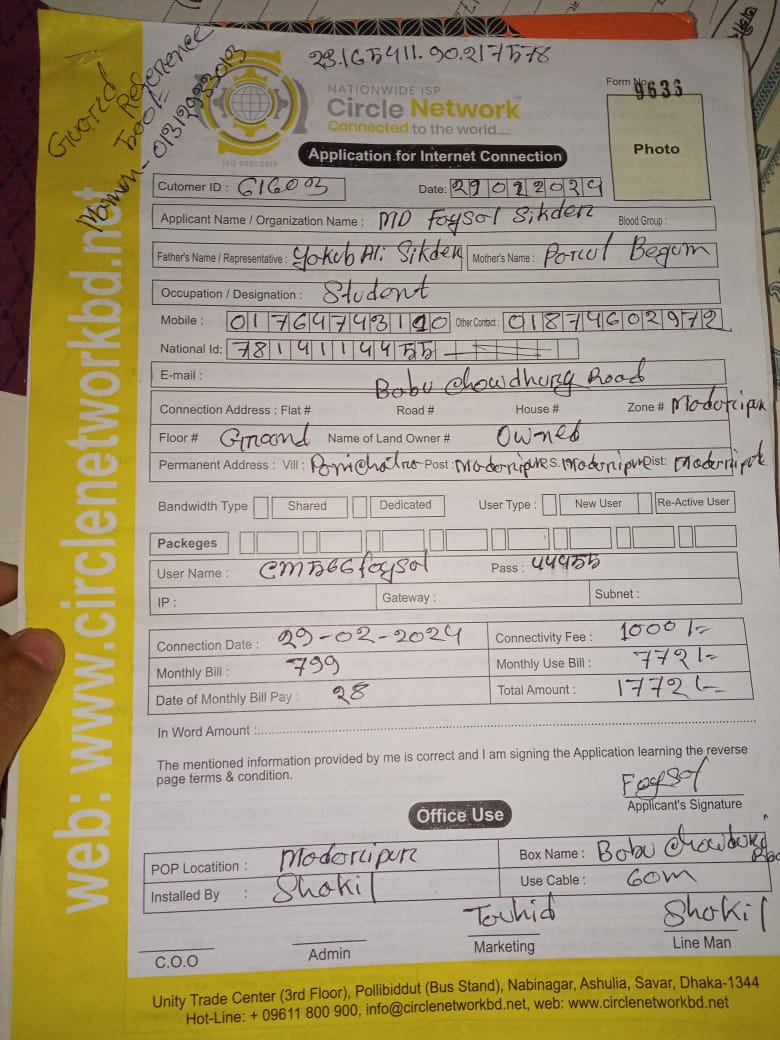 23.165411.90.217578
Guared
Reference
500/-
Mamun - 01312933013
NATIONWIDE ISP
Circle Network
Connected to the world.....
ISO 9001:2015
Form No
9636
Photo
Application for Internet Connection
Cutomer ID : 616003 Date: 29022024
Applicant Name / Organization Name : MD Foysol Sikder Blood Group :
Father's Name / Representative : Yakub Ali Sikder Mother's Name : Porul Begum
Occupation / Designation : Student
Mobile : Other Contact : 01874602972
National Id:
E-mail :
Bobu Chowdhury Road
Connection Address : Flat # Road # House # Zone # Madaripur
Floor # Ground Name of Land Owner # Owned
Permanent Address : Vill : Post : Madaripur P.S. Madaripur Dist: Madaripur
Bandwidth Type Shared Dedicated User Type : New User Re-Active User
Packeges
User Name : Pass :
IP : Gateway : Subnet :
Connection Date : 29-02-2024 Connectivity Fee : 1000/=
Monthly Bill : 799 Monthly Use Bill : 772/=
Date of Monthly Bill Pay : 28 Total Amount : 1772/=
In Word Amount :
The mentioned information provided by me is correct and I am signing the Application learning the reverse
page terms & condition.
Foysol
Applicant's Signature
Office Use
POP Locatition : Madaripur Box Name : Bobu Chowdury
Installed By : Shakil Use Cable : 60m
Touhid Shakil
C.O.O Admin Marketing Line Man
Unity Trade Center (3rd Floor), Pollibiddut (Bus Stand), Nabinagar, Ashulia, Savar, Dhaka-1344
Hot-Line: + 09611 800 900, info@circlenetworkbd.net, web: www.circlenetworkbd.net
web: www.circlenetworkbd.net